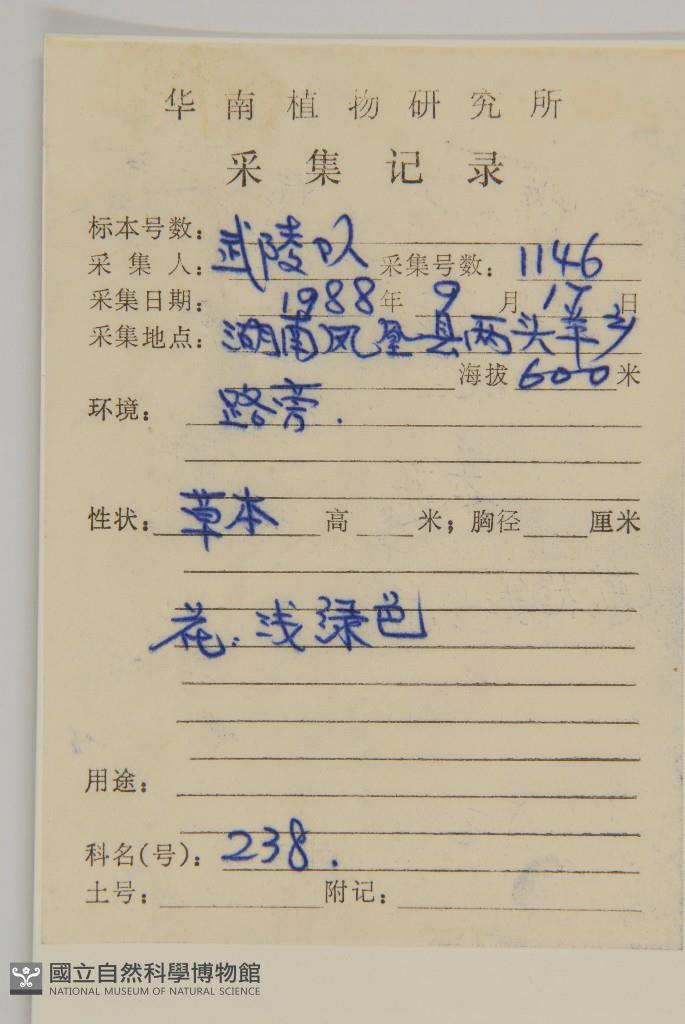 华南植物研究所
采集记录
标本号数：
采集人：武陵队 采集号数：1146
采集日期：1988年9月17日
采集地点：湖南凤凰县两头羊乡
海拔600米
环境：路旁.
性状：草本 高 米；胸径 厘米
花.浅绿色
用途：
科名(号)：238.
土号： 附记：
國立自然科學博物館
NATIONAL MUSEUM OF NATURAL SCIENCE